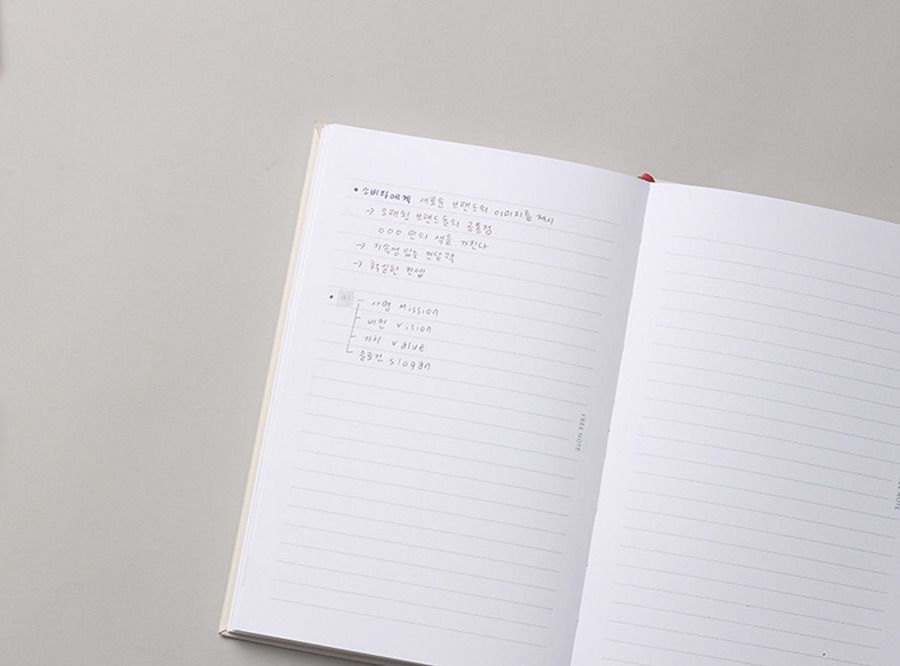 • 소비자에게 새로운 브랜드의 이미지를 제시
→ 오래된 브랜드들의 공통점
○○○ 만의 색을 가진다
→ 기억성 있는 전달력
→ 확실한 컨셉
• BI
사명 Mission
비전 Vision
가치 value
슬로건 slogan
FREE NOTE